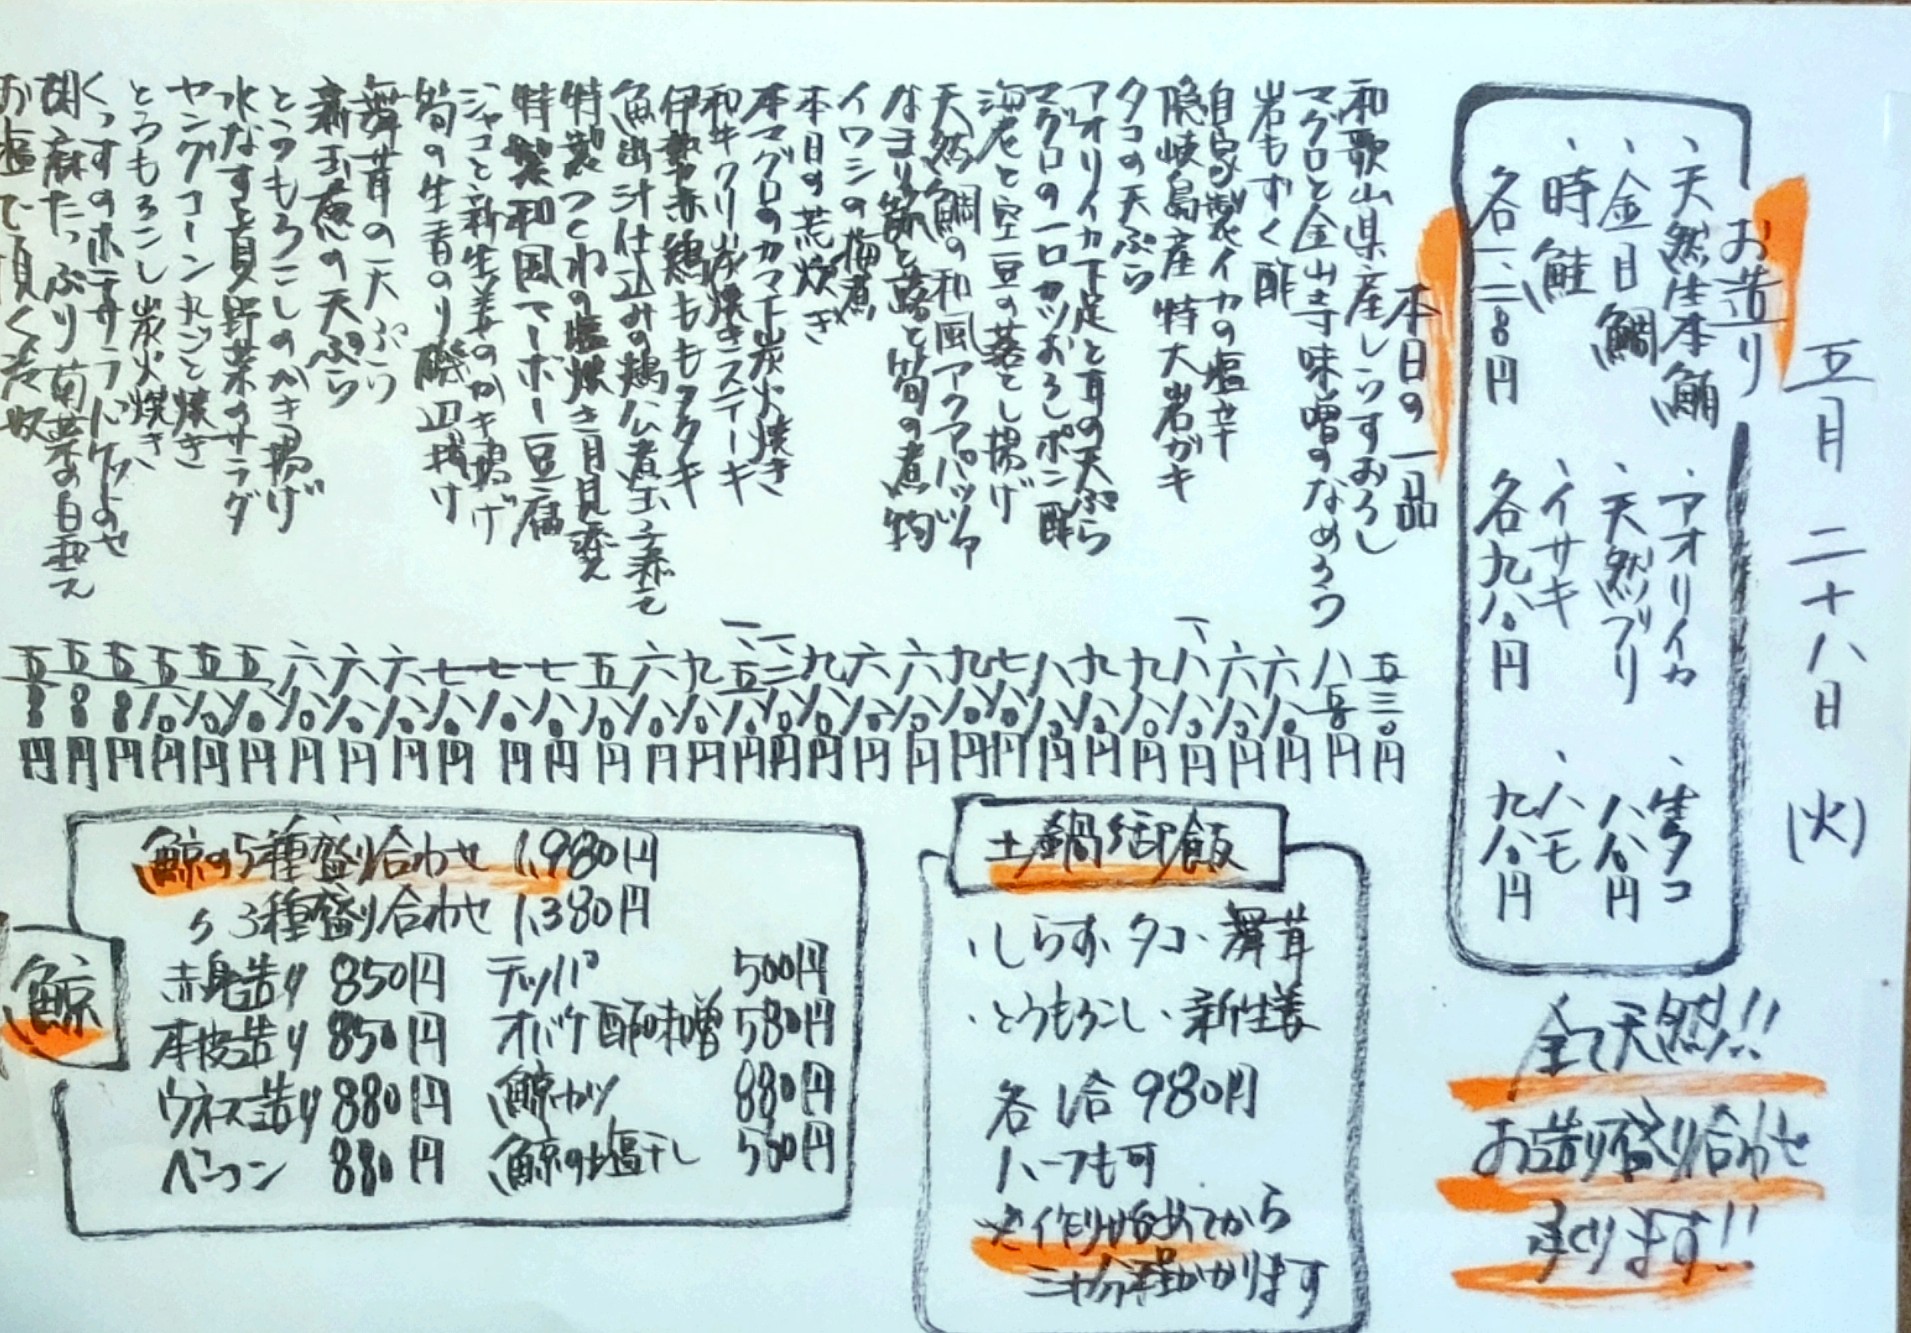 五月二十八日(火)
お造り
、天然生本鮪
、金目鯛
、時鮭
各一、二八〇円
、アオリイカ
、天然ブリ
、イサキ
各九八〇円
、生タコ
八八〇円
、ハモ
九八〇円
全て天然!!
お造り盛り合わせ
承ります!!
本日の一品
和歌山県産しらすおろし 五三〇円
マグロと金山寺味噌のなめろう 八五〇円
岩もずく酢 六八〇円
自家製イカの塩辛 六八〇円
隠岐島産 特大岩ガキ 一、八八〇円
タコの天ぷら 九八〇円
アオリイカ下足と耳の天ぷら 九八〇円
マグロの一口カツおろしポン酢 八八〇円
海老と空豆の落とし揚げ 七八〇円
天然鯛の和風アクアパッツァ 九八〇円
なまり節と蕗と筍の煮物 六八〇円
イワシの梅煮 六八〇円
本日の荒炊き 九八〇円
本マグロのカマ下炭火焼き 一、二八〇円
和牛クリ炭焼きステーキ 一、五八〇円
伊勢赤鶏ももタタキ 九八〇円
魚出汁仕込みの鶏ハム煮玉子添え 六八〇円
特製つくねの塩焼き月見添え 五八〇円
特製和風マーボー豆腐 七八〇円
ジャコと新生姜のかき揚げ 七八〇円
筍の生青のり磯辺揚げ 七八〇円
舞茸の天ぷら 六八〇円
新玉葱の天ぷら 六八〇円
とうもろこしのかき揚げ 六八〇円
水なすと夏野菜のサラダ 五八〇円
ヤングコーン丸ごと焼き 五八〇円
とうもろこし炭火焼き 五八〇円
くっすのポテサラ バゲットのせ 五〇〇円
胡麻たっぷり菊菜の白和え 五〇〇円
お塩で頂く冷奴 五〇〇円
土鍋御飯
・しらす・タコ・舞茸
・とうもろこし・新生姜
各1合980円
ハーフも可
※作り始めてから
三十分程かかります
鯨
鯨の5種盛り合わせ 1,980円
〃 3種盛り合わせ 1,380円
赤身造り 850円
本皮造り 850円
ウネス造り 880円
ベーコン 880円
テッパ 500円
オバケ酢味噌 580円
鯨カツ 880円
鯨の塩干し 500円